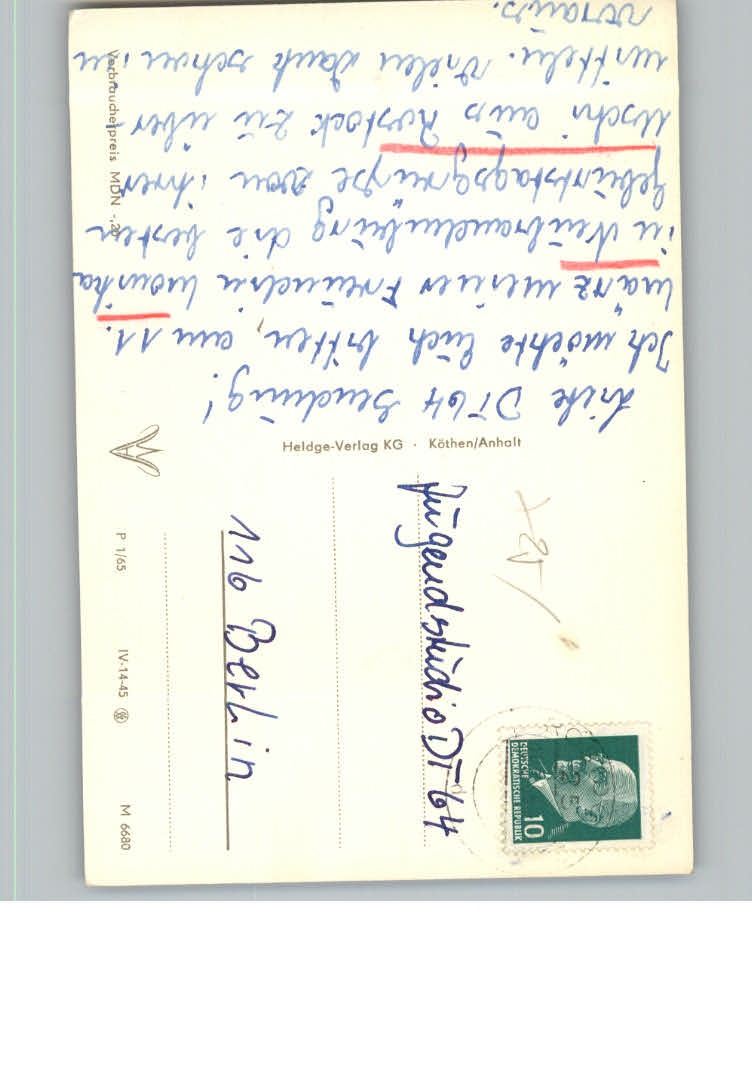 Liebe DT 64 Sendung!
Ich möchte Euch bitten, am 11.
März meiner Freundin Monika
in Neubrandenburg die besten
Geburtstagsgrüße von ihrer
Uschi aus Rostock zu über-
mitteln. Vielen Dank schon im
voraus.
Heldge-Verlag KG · Köthen/Anhalt
Jugendstudio DT 64
116 Berlin
DEUTSCHE
DEMOKRATISCHE REPUBLIK
10
Verbraucherpreis MDN -,20
P 1/65
IV-14-45
M 6680